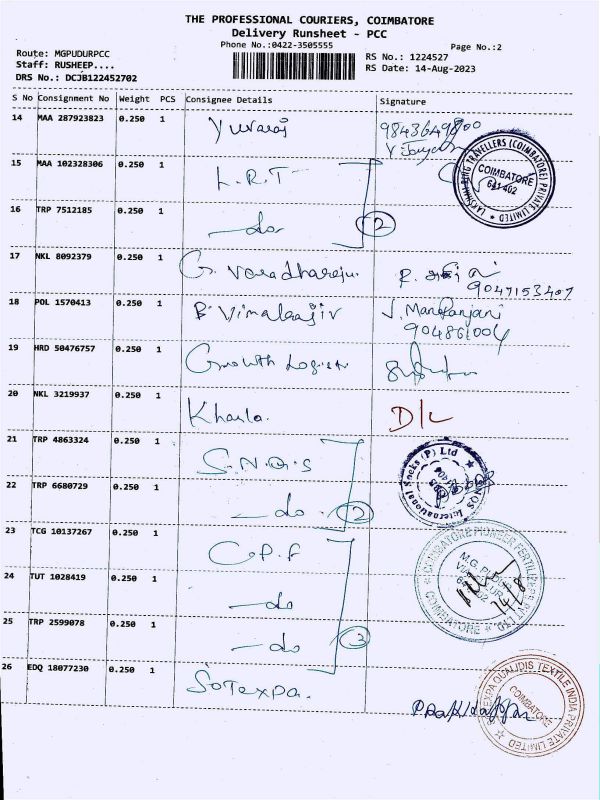 THE PROFESSIONAL COURIERS, COIMBATORE
Delivery Runsheet - PCC
Phone No.:0422-3505555
Page No.:2
Route: MGPUDURPCC
Staff: RUSHEEP....
DRS No.: DCJB122452702
RS No.: 1224527
RS Date: 14-Aug-2023
S No Consignment No Weight PCS Consignee Details Signature
14 MAA 287923823 0.250 1 Yuvaraj
15 MAA 102328306 0.250 1 L.R.T
LAKSHMI RING TRAVELLERS (COIMBATORE) PRIVATE LIMITED
COIMBATORE
641 402
16 TRP 7512185 0.250 1 -do 2
17 NKL 8092379 0.250 1 G. Varadharaju. 9047153407
18 POL 1570413 0.250 1 B. Vimalraajiv J. Manoranjani
904861004
19 HRD 50476757 0.250 1 Growth Logisti
20 NKL 3219937 0.250 1 D/L
21 TRP 4863324 0.250 1 S.N.Q.S
SNQS International Socks (P) Ltd
22 TRP 6680729 0.250 1 -do 2
23 TCG 10137267 0.250 1 C.P.F
COIMBATORE PIONEER FERTILIZERS PVT LTD
COIMBATORE
24 TUT 1028419 0.250 1 -do
14/8
25 TRP 2599078 0.250 1 -do 3
26 EDQ 18077230 0.250 1 Sotexpa.
SOTEXPA QUALIDIS TEXTILE INDIA PRIVATE LIMITED
COIMBATORE